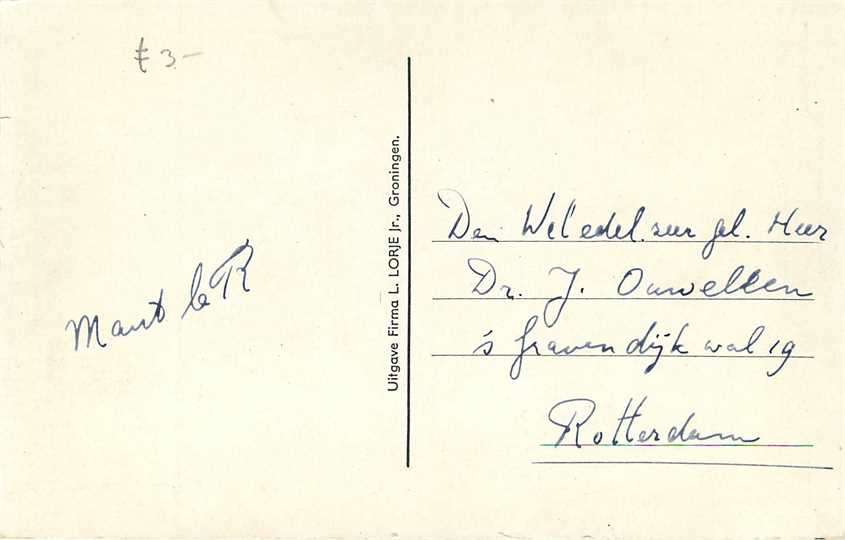 3-
Uitgave Firma L. LORJE Jr., Groningen.
Den Wel'edel. zeer gel. Heer
Dr. J. Ouweleen
's Gravendijkwal 19
Rotterdam